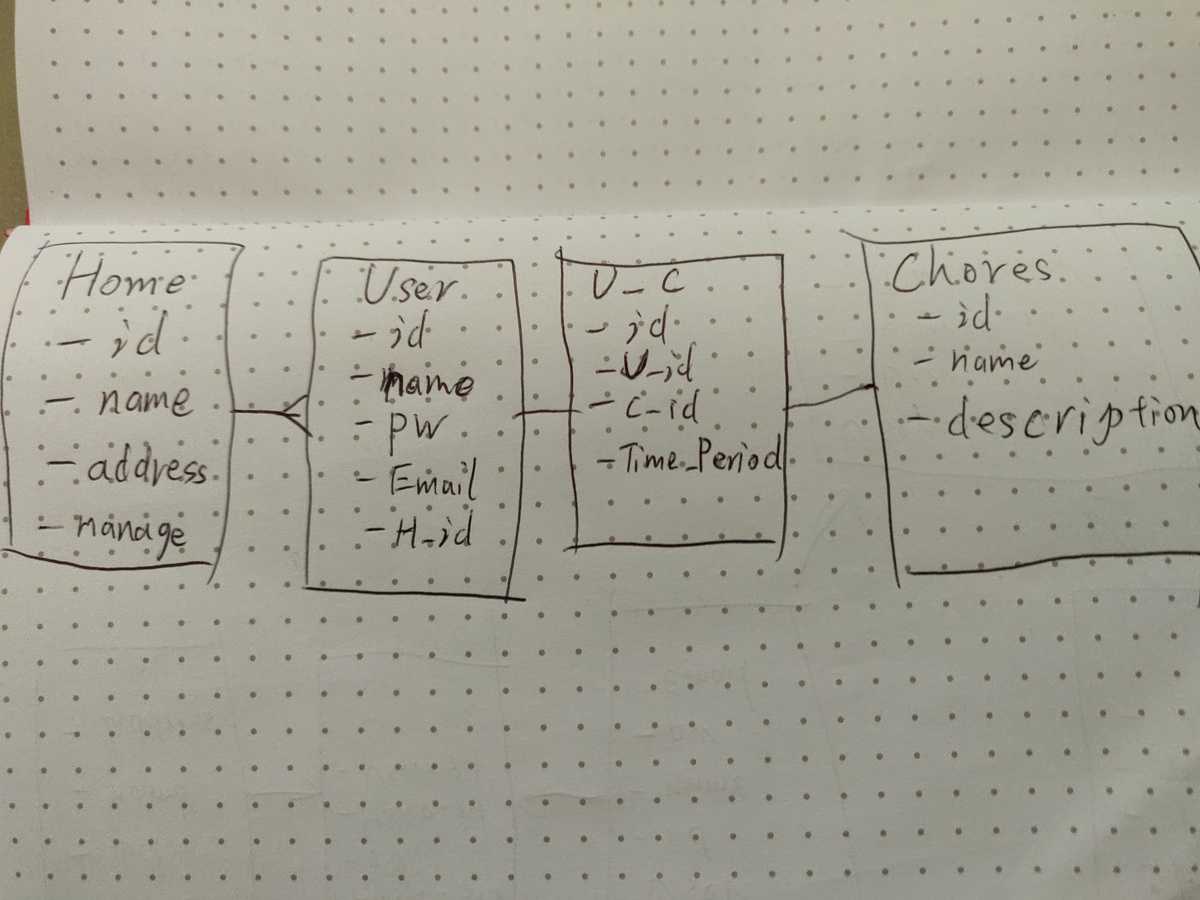 Home
- id
- name
- address
- manage
User
- id
- name
- pw
- Email
- H_id
U_C
- id
- U_id
- C_id
- Time_Period
Chores
- id
- name
- description